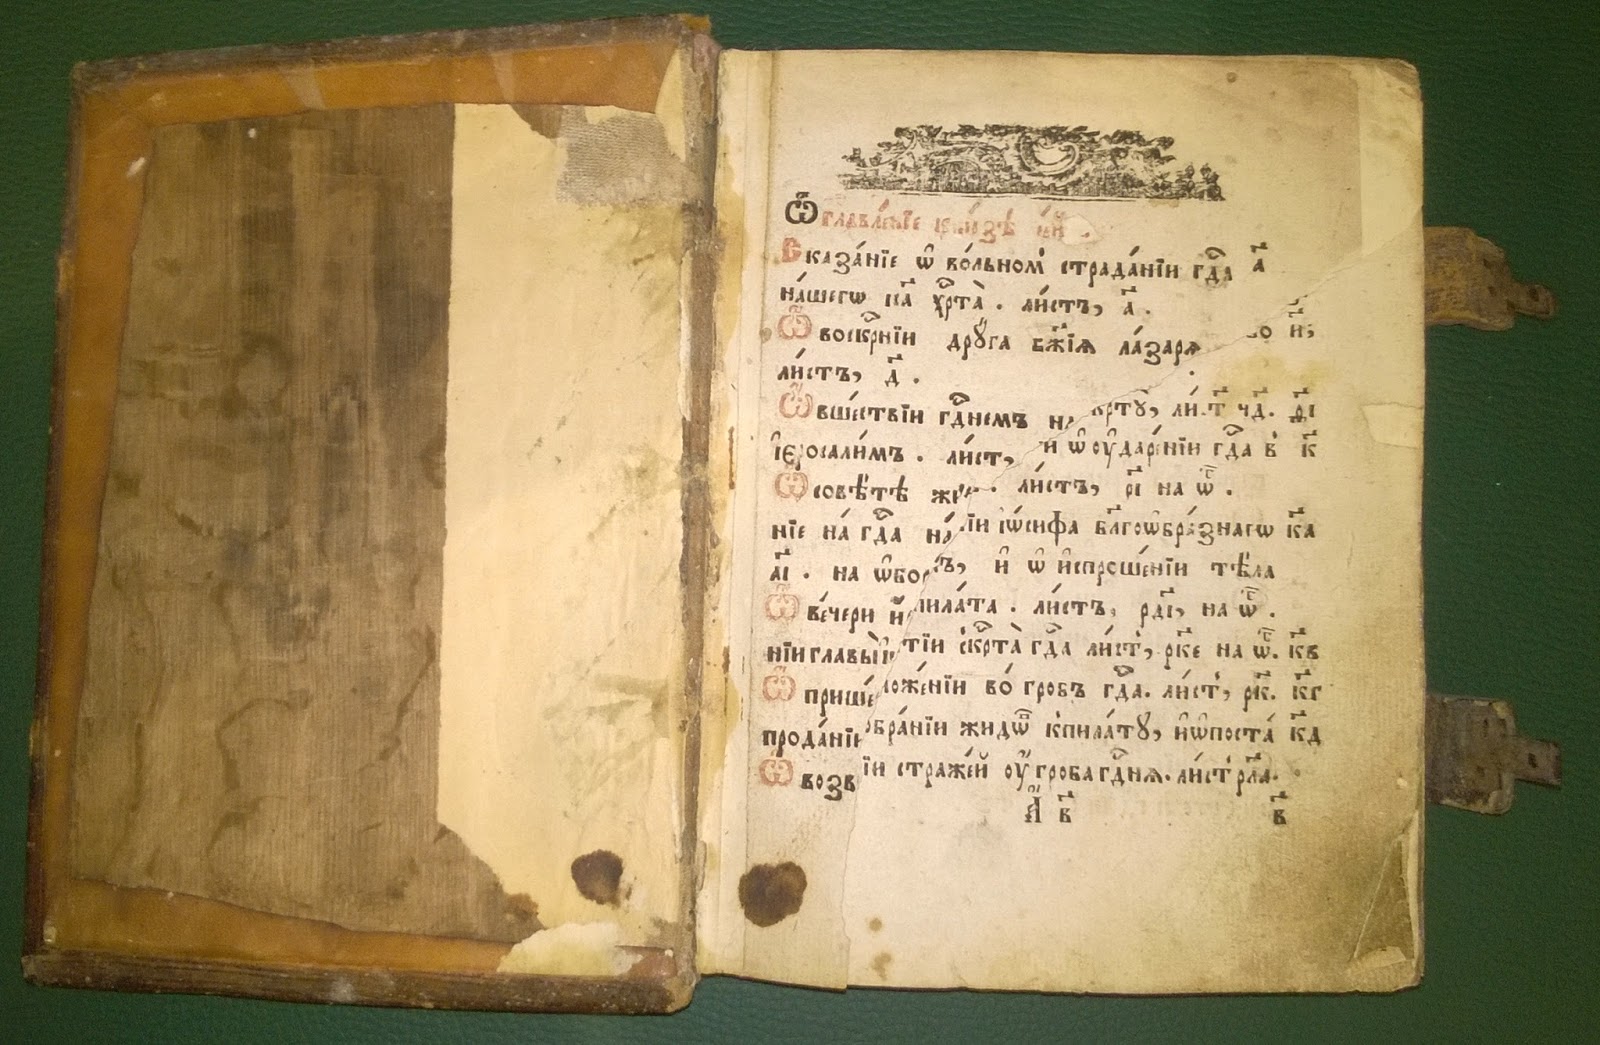 Ѡ҆главле́нїе кни́зѣ се́й .
Сказа́нїе ѡ҆ во́льном страда́нїи гдⷭ҇а а҃
на́шегѡ і҆и҃са хрⷭ҇та̀ . ли́стъ, а҃ .
Ѡ҆ воскрⷭ҇нїи дрꙋ́га бж҃їѧ ла́зарѧ во и҃;
ли́стъ, д҃ .
Ѡ҆ вше́ствїи гдⷭ҇немъ на крⷭ҇тꙋ̀, ли́ст ч҃д. ѳ҃і
і҆ерⷭ҇оали́мъ . ли́ст, и҆ ѡ҆ ᲂу҆даре́нїи гдⷭ҇а в к҃
Ѡ҆ совѣ́тѣ ли́стъ, р҃і на ѡ҆б .
нїе на́ гдⷭ҇а на і҆ѡ́сифа бл҃гоѡбра́знагѡ к҃а
а҃і . на ѡ҆бо и҆ ѡ҆ и҆спроше́нїи тѣ́ла
Ѡ҆ ве́чери пила́та . ли́стъ, рд҃і, на ѡ҆б .
нїи главы̀ тїи с крⷭ҇та̀ гдⷭ҇а ли́ст, рк҃е на ѡ҆б. к҃в
Ѡ҆ прише ложе́нїи во́ гробъ гдⷭ҇а. ли́ст, рк҃. к҃г
прода́нїи бра́нїи жидѡ́в к пила́тꙋ, и҆ ѡ҆ поста́ к҃д
Ѡ҆ возв їи страже́й ᲂу҆ гро́ба гдⷭ҇нѧ. ли́ст рл҃а.
А҃ в҃ в҃